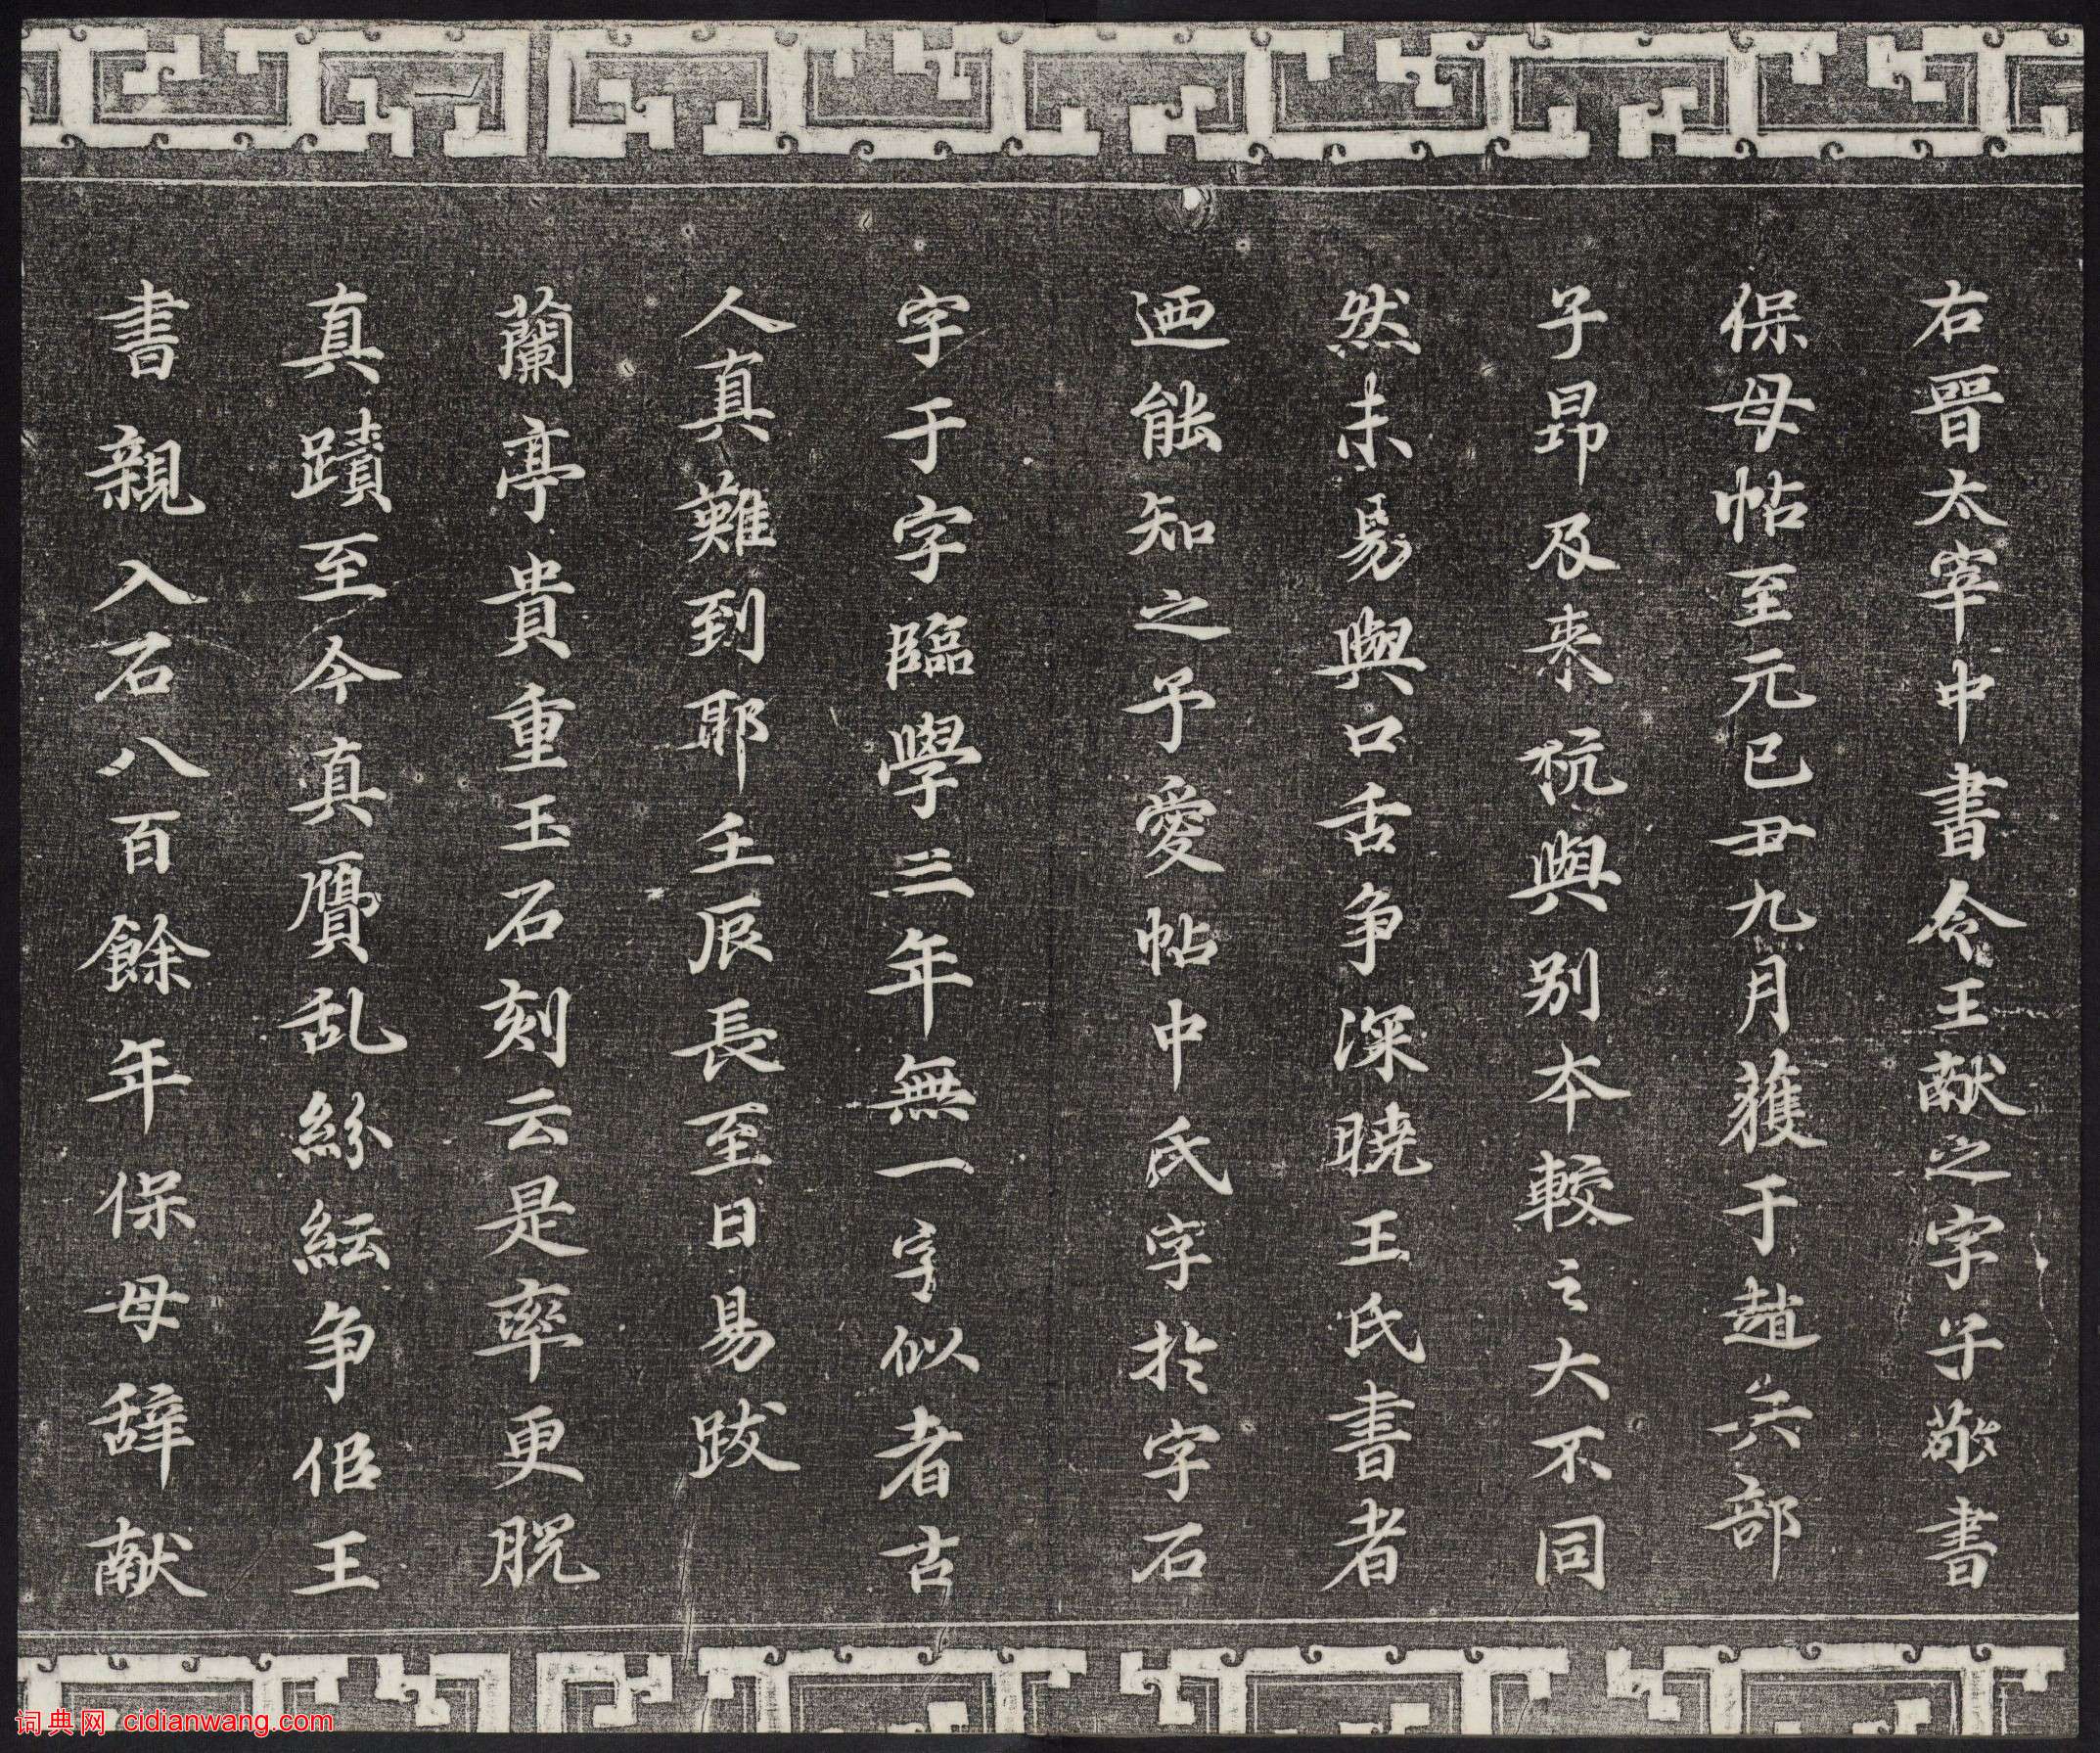 右晉太宰中書令王献之字子敬書
保母帖至元己丑九月獲于趙兵部
子昂及来杭與别本較之大不同
然未易與口舌争深曉王氏書者
迺能知之予愛帖中氏字於字石
字于字臨學三年無一字似者古
人真難到耶壬辰長至日易跋
蘭亭貴重玉石刻云是率更脱
真蹟至今真贋乱紛紜争侶王
書親入石八百餘年保母辭献
词典网 cidianwang.com